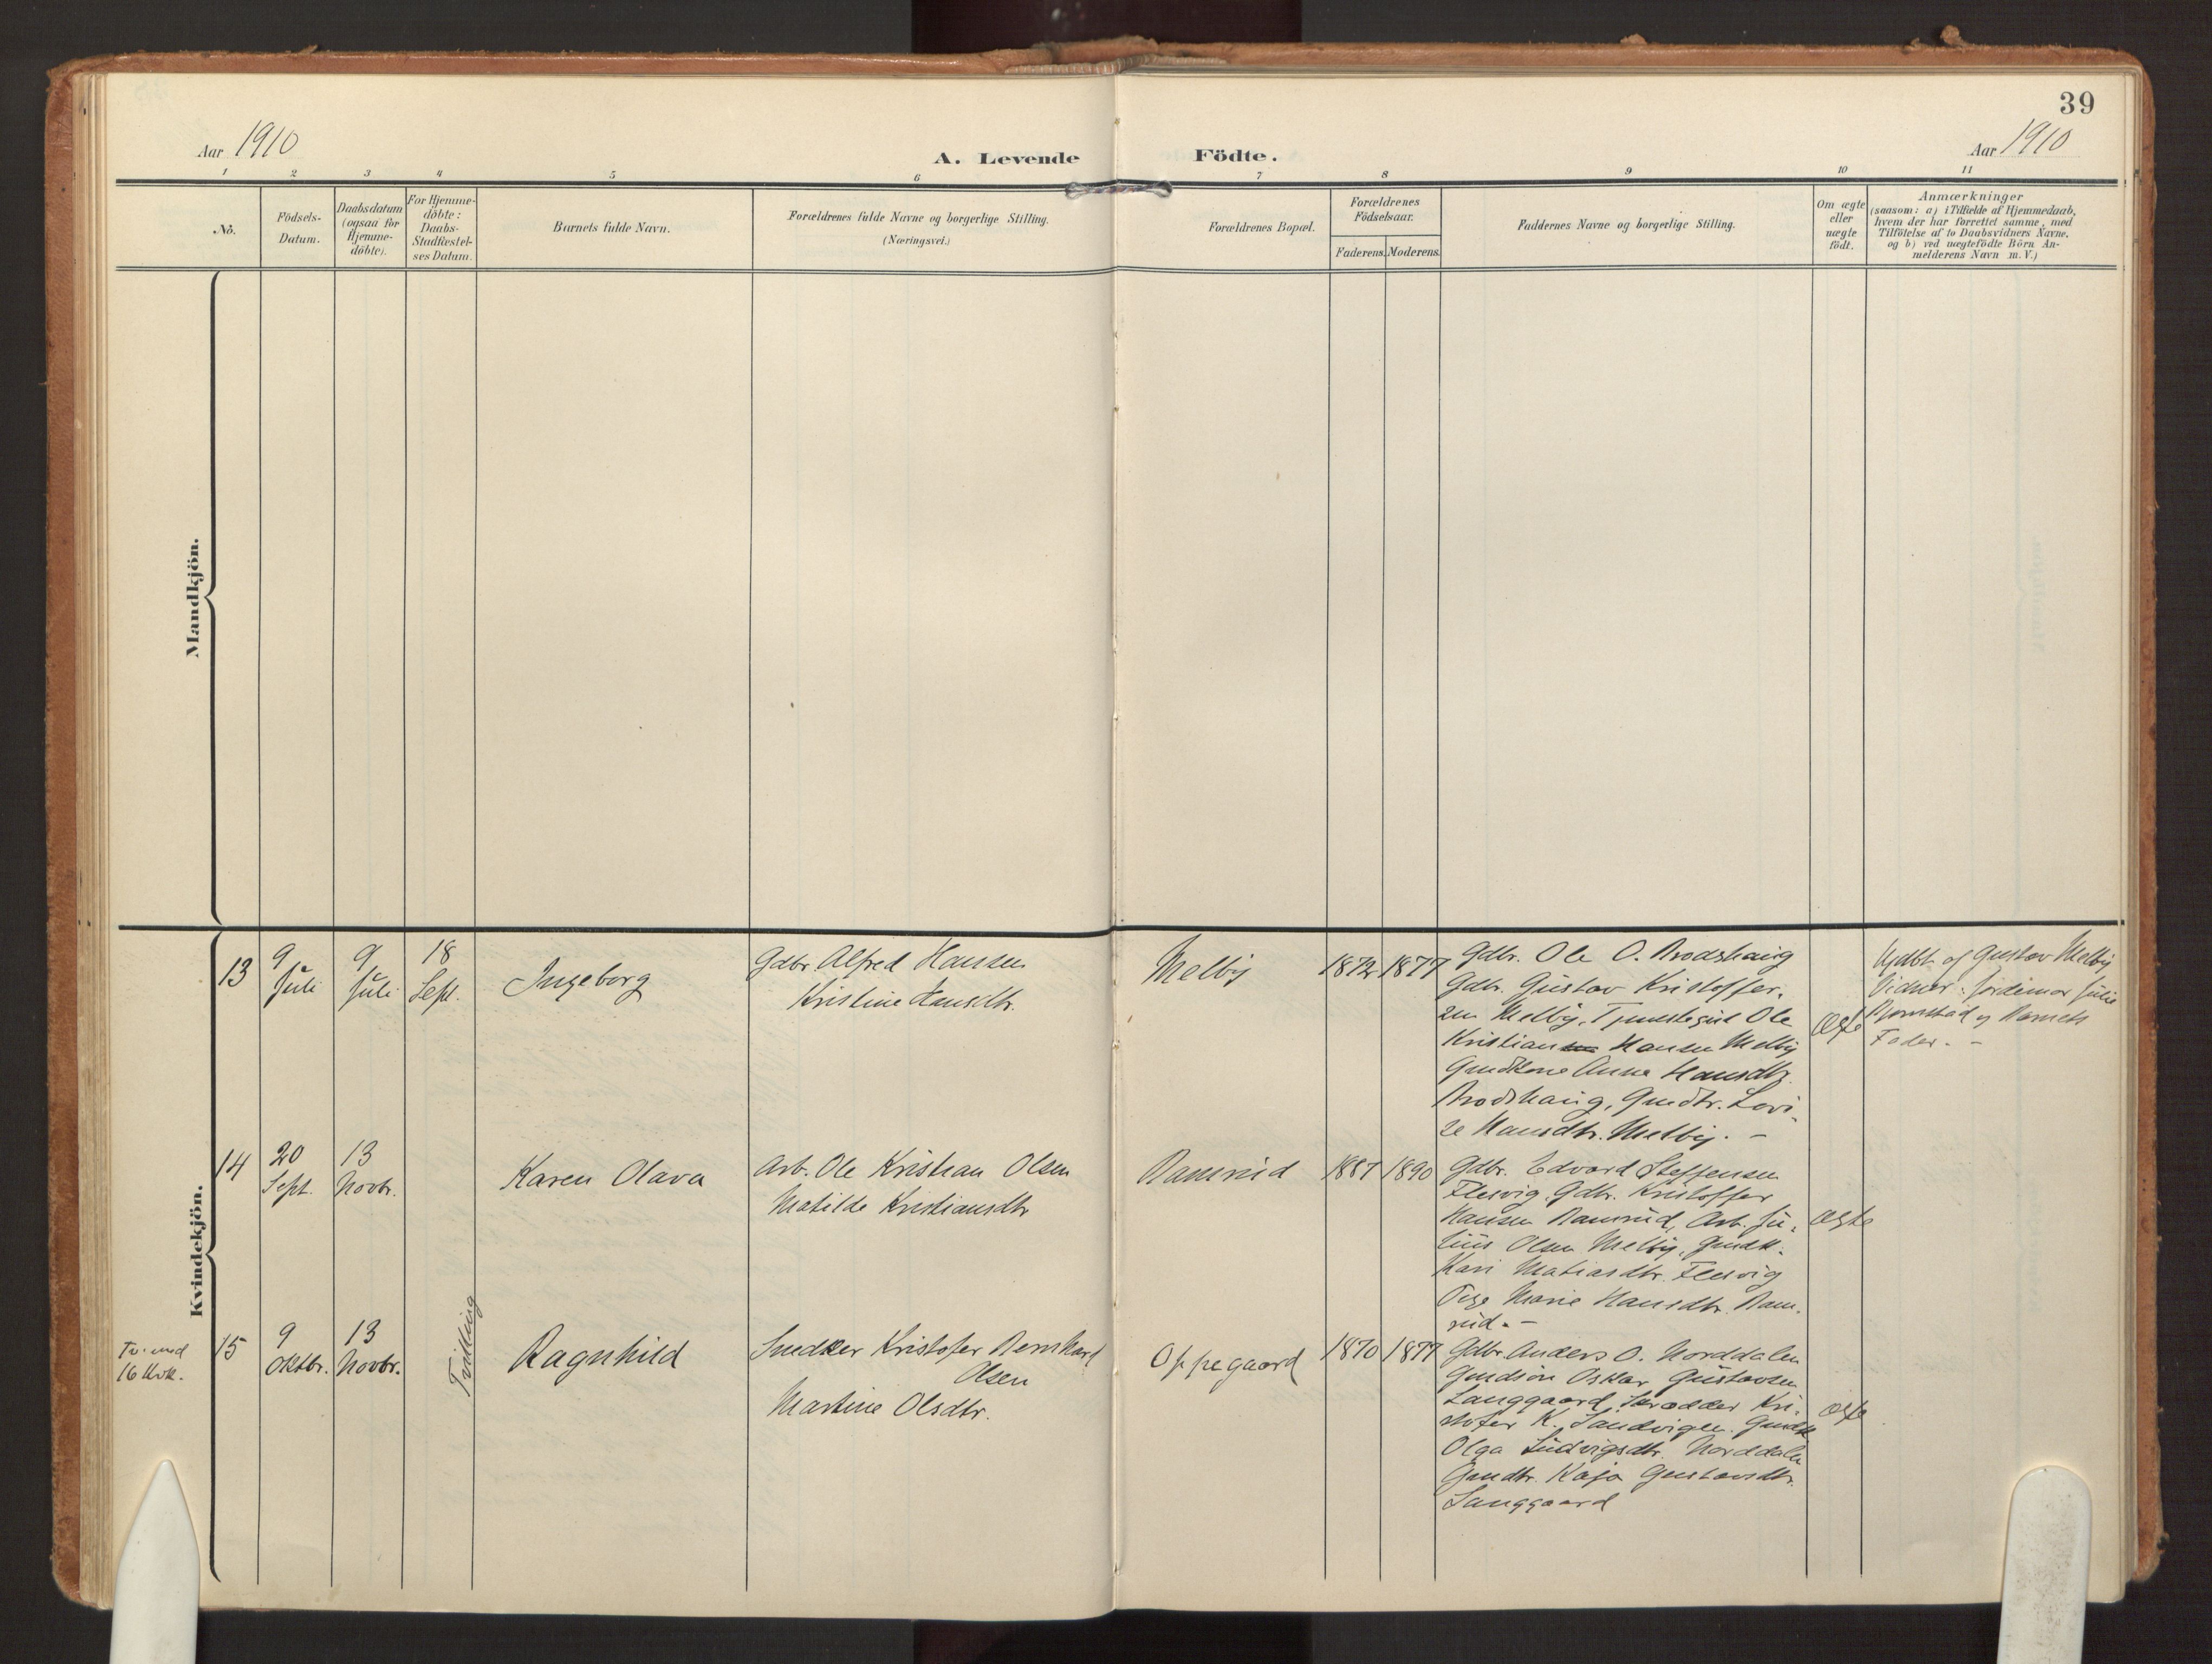 39
Aar 1910
A. Levende Födte.
Aar 1910
1 2 3 4 5 6 7 8 9 10 11
No.
Födsels-
Datum.
Daabsdatum
(ogsaa for
Hjemme-
döbte).
For Hjemme-
döbte:
Daabs-
Stadfæstel-
ses Datum.
Barnets fulde Navn.
Forældrenes fulde Navne og borgerlige Stilling.
(Næringsvei.)
Forældrenes Bopæl.
Forældrenes
Födselsaar.
Faderens. Moderens.
Faddernes Navne og borgerlige Stilling.
Om ægte
eller
uægte
födt.
Anmærkninger
(saasom: a) i Tilfælde af Hjemmedaab,
hvem der har forrettet samme, med
Tilföielse af to Daabsvidners Navne,
og b) ved uægtefödte Börn An-
melderens Navn m. V.)
Mandkjön.
Kvindekjön.
13
9
Juli
9
Juli
18
Sept.
Ingeborg
Gdbr. Alfred Hansen
Kristine Hansdtr.
Melby
1872 1877
Gdbr. Ole O. Brodshaug
Gdbr. Gustav Kristoffer-
sen Melby, Tjenestegut Ole
Kristian Hansen Melby
Gmdkone Anne Hansdtr.
Brodshaug, Gmdtr. Lovi-
se Hansdtr. Melby. -
Ægte
Hjdbt af Gustav Melby
Vidner: Jordemor Julie
Bjørnstad og Barnets
Fader. -
14
20
Sept.
13
Novbr.
Karen Olava
Arb. Ole Kristian Olsen
Matilde Kristiansdtr
Ramsrud
1887 1890
Gdbr. Edvard Steffensen
Flesvig, Gdbr. Kristoffer
Hansen Ramsrud, Arb. Ju-
lius Olsen Melby, Gmdk.
Kari Matiasdtr. Flesvig
Pige Marie Hansdtr. Ram-
rud. -
Ægte
Tv. med
16 Kvk.
15
9
Oktbr.
13
Novbr.
Tvilling
Ragnhild
Snedker Kristofer Bernhard
Olsen
Martine Olsdtr.
Oppegaard
1870 1877
Gdbr. Anders O. Norddalen
Gmdsøn Oskar Gustavsen
Langgaard, Skrædder Kri-
stofer K. Sandvigen. Gmdk
Olga Ludvigsdtr. Norddalen
Gmdtr. Kaja Gustavsdtr.
Langgaard
Ægte